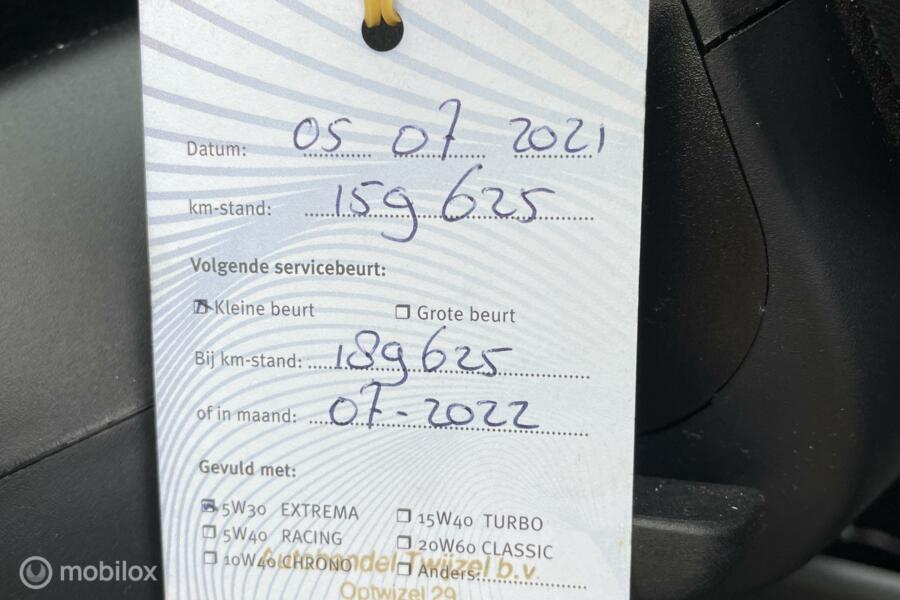 Datum: 05 07 2021
km-stand: 159 625
Volgende servicebeurt:
Kleine beurt Grote beurt
Bij km-stand: 189 625
of in maand: 07-2022
Gevuld met:
5W30 EXTREMA 15W40 TURBO
5W40 RACING 20W60 CLASSIC
10W40 CHRONO Anders:
Autohandel Twijzel b.v.
Optwizel 29
mobilox